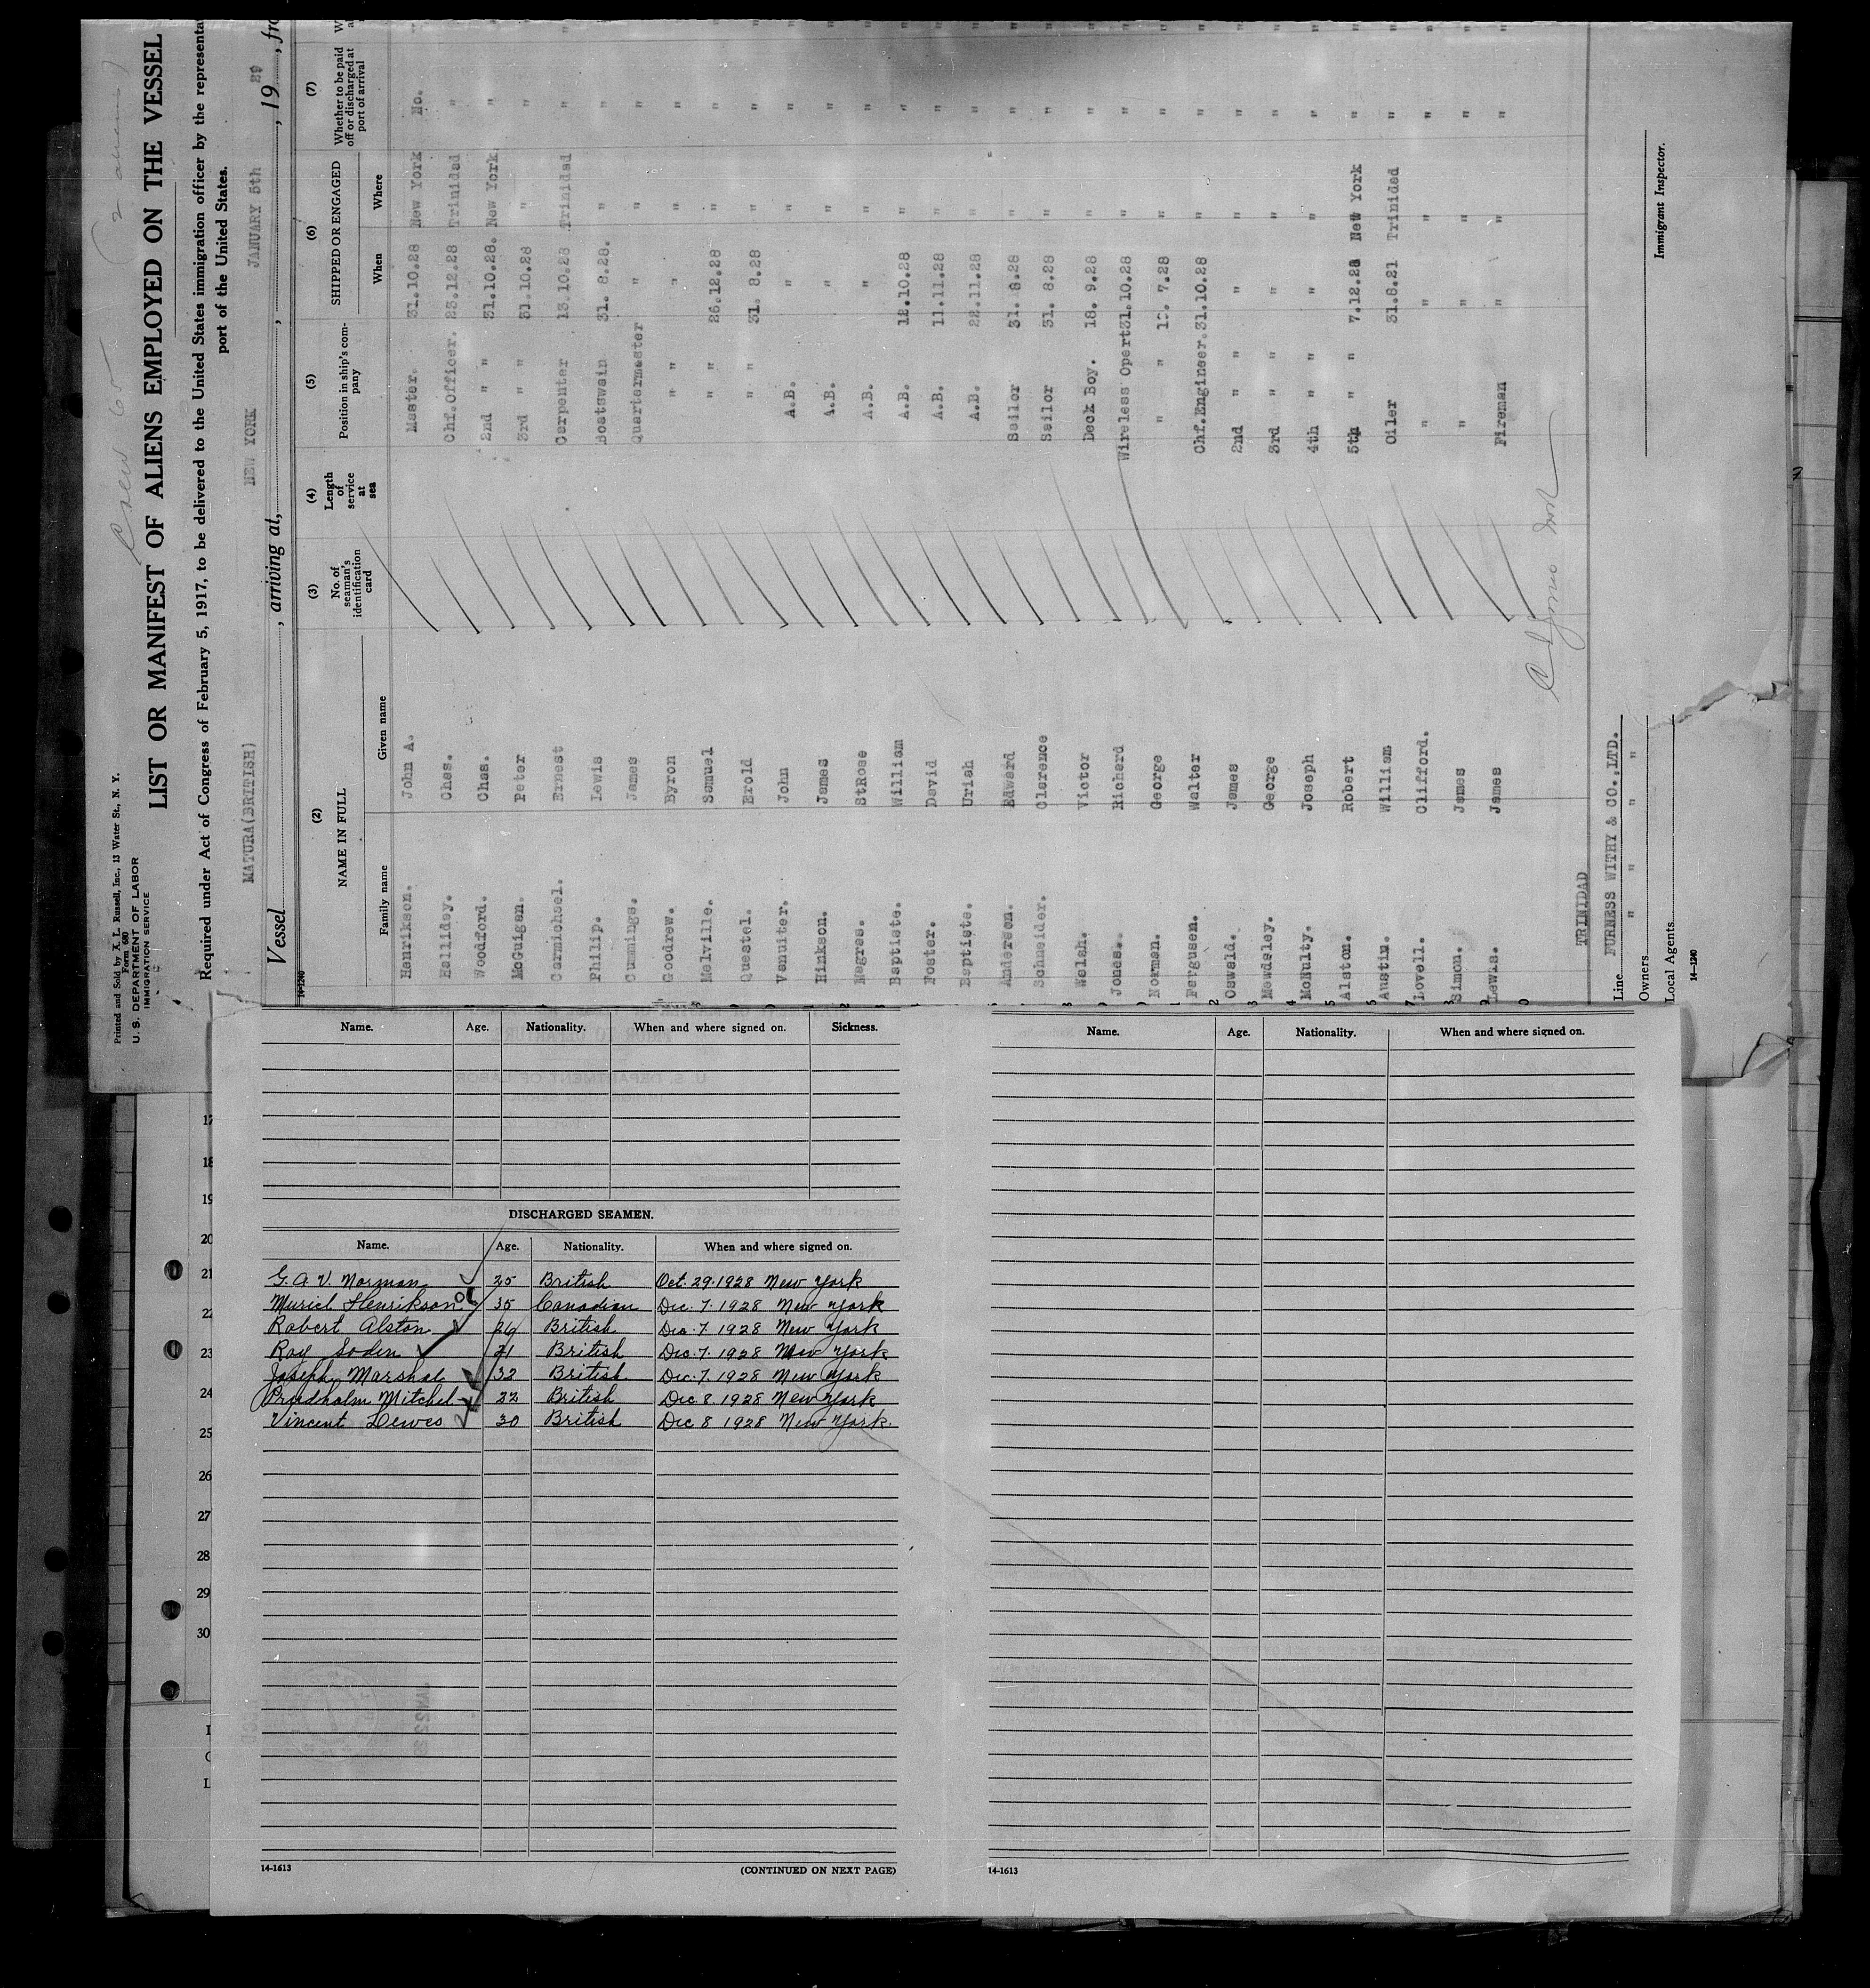 Printed and Sold by A. L. Russell, Inc., 13 Water St., N. Y.
Form 680
U. S. DEPARTMENT OF LABOR
IMMIGRATION SERVICE
Crew 60
LIST OR MANIFEST OF ALIENS EMPLOYED ON THE VESSEL
Required under Act of Congress of February 5, 1917, to be delivered to the United States immigration officer by the representa
port of the United States.
MATURA(BRITISH) NEW YORK JANUARY 5th 29
Vessel , arriving at, , 19 , fro
14-1240
(2) (3) (4) (5) (6) (7)
NAME IN FULL No. of seaman's identification card Length of service at sea Position in ship's company SHIPPED OR ENGAGED Whether to be paid off or discharged at port of arrival
Family name Given name When Where
Henrikson. John A. Master. 31.10.28 New York No.
Halliday. Chas. Chf.Officer. 23.12.28 Trinidad "
Woodford. Chas. 2nd " " 31.10.28. New York "
McGuigan. Peter 3rd " " 31.10.28 " "
Carmichael. Ernest Carpenter 13.10.28 Trinidad "
Philip. Lewis Boatswain 31. 8.28. " "
Cummings. James Quartermaster " " "
Goodrew. Byron " " " " "
Melville. Samuel " " 26.12.28 " "
Questel. Erold " " 31. 8.28 " "
Vanuiter. John A.B. " " "
Hinkson. James A.B. " " "
Negres. StRose A.B. " " "
Baptiste. William A.B. 12.10.28 " "
Foster. David A.B. 11.11.28 " "
Baptiste. Uriah A.B. 22.11.28 " "
Anderson. Edward Sailor 31. 8.28 " "
Schneider. Clarence Sailor 31. 8.28 " "
Walsh. Victor Deck Boy. 18. 9.28 " "
Jones. Richard Wireless Opert 31.10.28 " "
Norman. George " " 7.28 " "
Fergusen. Walter Chf.Engineer. 31.10.28 " "
Oswald. James 2nd " " " "
Mawdsley. George 3rd " " " "
McNulty. Joseph 4th " " " "
Alston. Robert 5th " " 7.12.28 New York "
Austin. William Oiler 31.8.21 Trinidad "
Lovell. Clifford. " " " "
Simon. James " " " "
Lewis. James Fireman " " "
TRINIDAD
Line FURNESS WITHY & CO.,LTD.
Owners " " " "
Local Agents
Immigrant Inspector.
14-1240
Name. Age. Nationality. When and where signed on. Sickness.
DISCHARGED SEAMEN.
Name. Age. Nationality. When and where signed on.
G. A. V. Norman 25 British Oct. 29. 1928 New York
Muriel Henrikson 35 Canadian Dec. 7. 1928 New York
Robert Alston 24 British Dec. 7 1928 New York
Roy Soden 21 British Dec. 7. 1928 New York
Joseph Marshal 32 British Dec. 7. 1928 New York
Prudholm Mitchel 22 British Dec 8. 1928 New York
Vincent Lewes 30 British Dec 8 1928 New York.
14-1613
(CONTINUED ON NEXT PAGE)
Name. Age. Nationality. When and where signed on.
14-1613
17
18
19
20
21
22
23
24
25
26
27
28
29
30